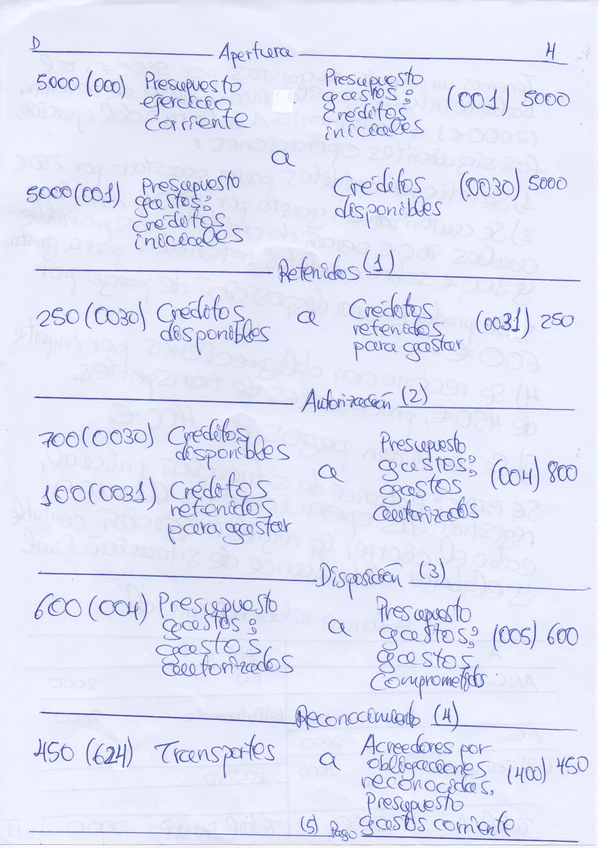 D Apertura H
5000 (000) Presupuesto ejercicio corriente
Presupuesto gastos: créditos iniciales (001) 5000
a
5000 (001) Presupuesto gastos: créditos iniciales
Créditos disponibles (0030) 5000
Retenidos (1)
250 (0030) Créditos disponibles
a
Créditos retenidos para gastar (0031) 250
Autorización (2)
700 (0030) Créditos disponibles
100 (0031) Créditos retenidos para gastar
a
Presupuesto gastos: gastos autorizados (004) 800
Disposición (3)
600 (004) Presupuesto gastos: gastos autorizados
a
Presupuesto gastos: gastos comprometidos (005) 600
Reconocimiento (4)
450 (624) Transportes
a
Acreedores por obligaciones reconocidas. Presupuesto gastos corriente (400) 450
(5) Pago